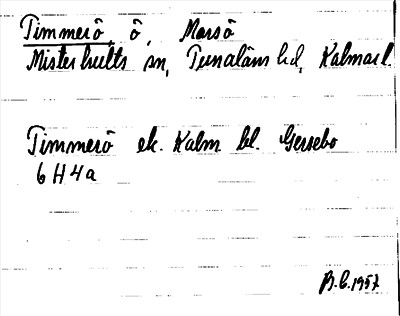 Timmerö, ö, Marsö
Misterhults sn, Tunaläns hd, Kalmar l.
Timmerö ek. Kalm bl. Gersebo
6 H 4 a
B.E. 1957